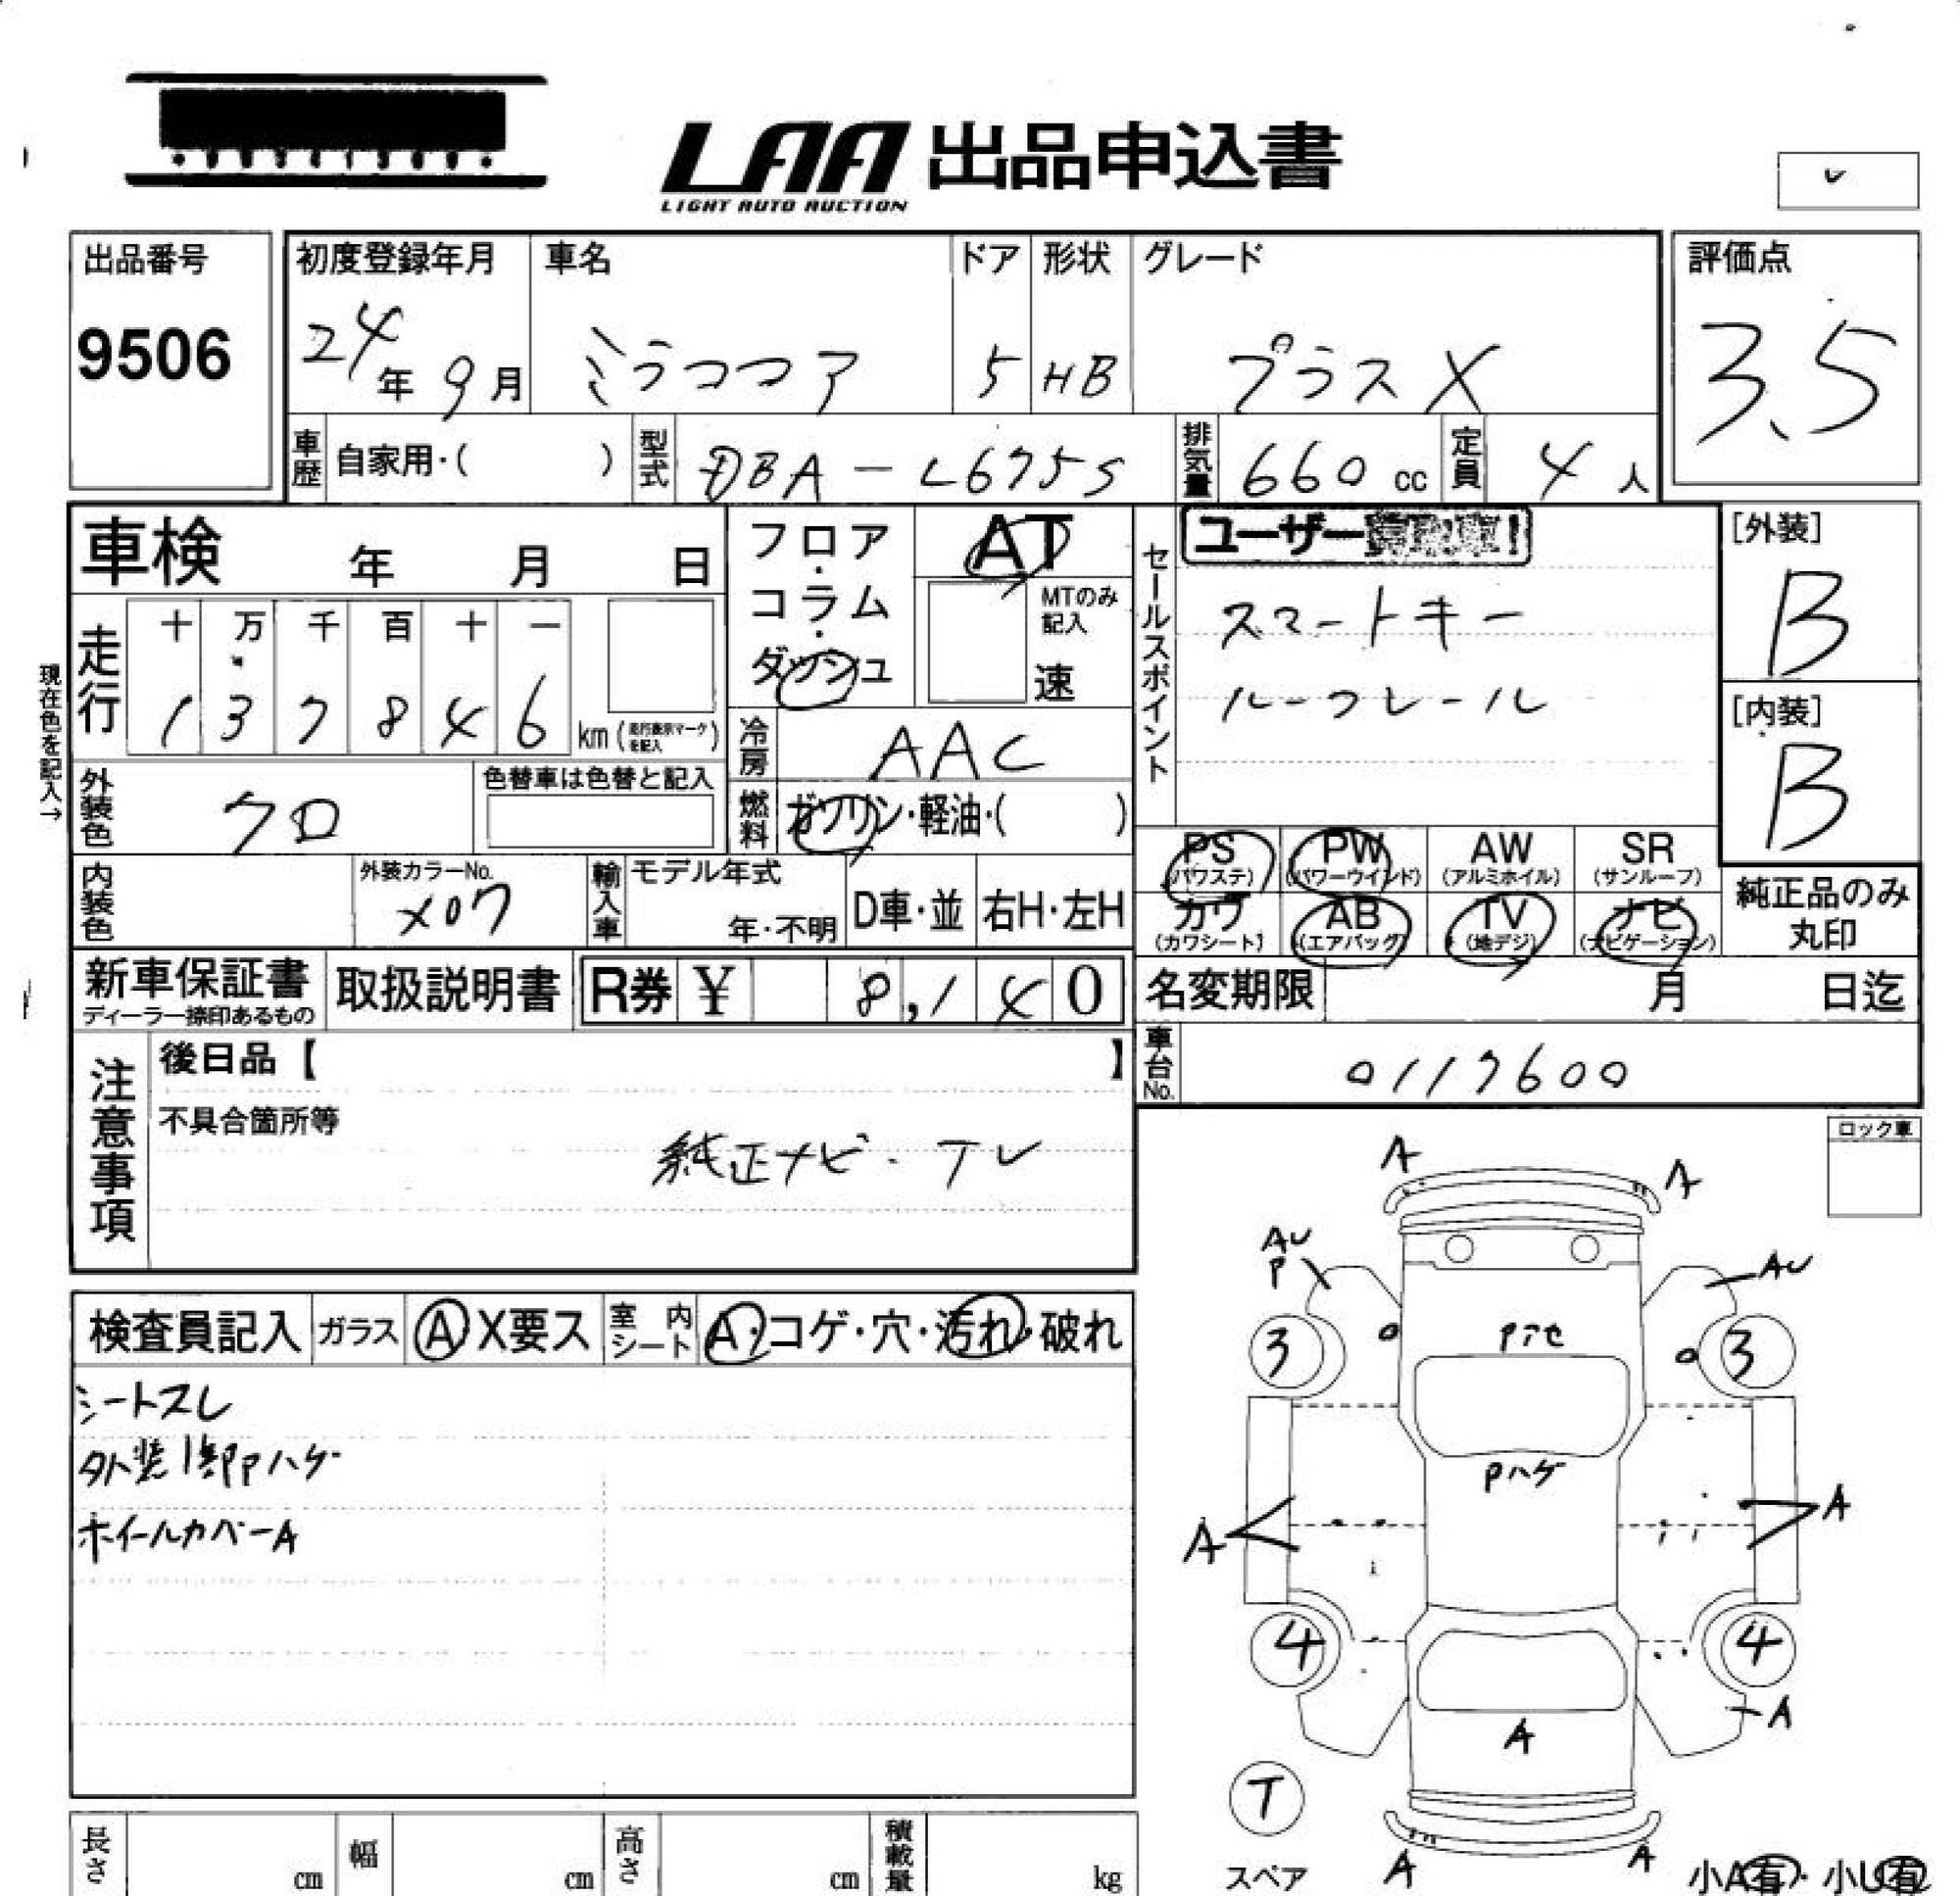 LAA 出品申込書
LIGHT AUTO AUCTION
レ
出品番号
9506
初度登録年月
24年 9月
車名
ミラココア
ドア
5
形状
HB
グレード
プラスX
評価点
3.5
車歴 自家用・( )
型式 DBA-L675S
排気量 660 cc
定員 4 人
車検 年 月 日
走行
十 万 千 百 十 一
1 3 7 8 4 6 km (走行表示マークを記入)
現在色を記入→
フロア・コラム・ダッシュ
AT
MTのみ記入
速
冷房 AAC
燃料 ガソリン・軽油・( )
セールスポイント
ユーザー
スマートキー
ルーフレール
[外装]
B
[内装]
B
外装色 クロ
色替車は色替と記入
内装色
外装カラーNo.
X07
輸入車 モデル年式
年・不明
D車・並
右H・左H
PS (パワステ)
PW (パワーウインド)
AW (アルミホイル)
SR (サンルーフ)
カワ (カワシート)
AB (エアバッグ)
TV (地デジ)
ナビ (ナビゲーション)
純正品のみ丸印
新車保証書
ディーラー捺印あるもの
取扱説明書
R券 ¥ 8,140
名変期限 月 日迄
車台No. 0117600
注意事項
後日品【 】
不具合箇所等
純正ナビ・TV
ロック車
検査員記入 ガラス A X要ス 室内シート A・コゲ・穴・汚れ・破れ
シートスレ
外装1部Pハゲ
ホイールカバーA
A
A
AU
P
AU
3
3
Pハゲ
A
A
4
4
A
A
T
スペア
A
A
小A有・小U有
長さ cm 幅 cm 高さ cm 積載量 kg